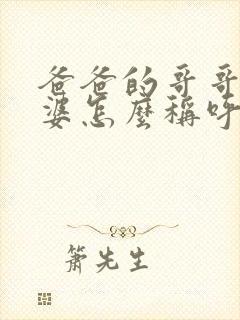 爸爸的哥哥
婆怎麼稱呼
簫先生